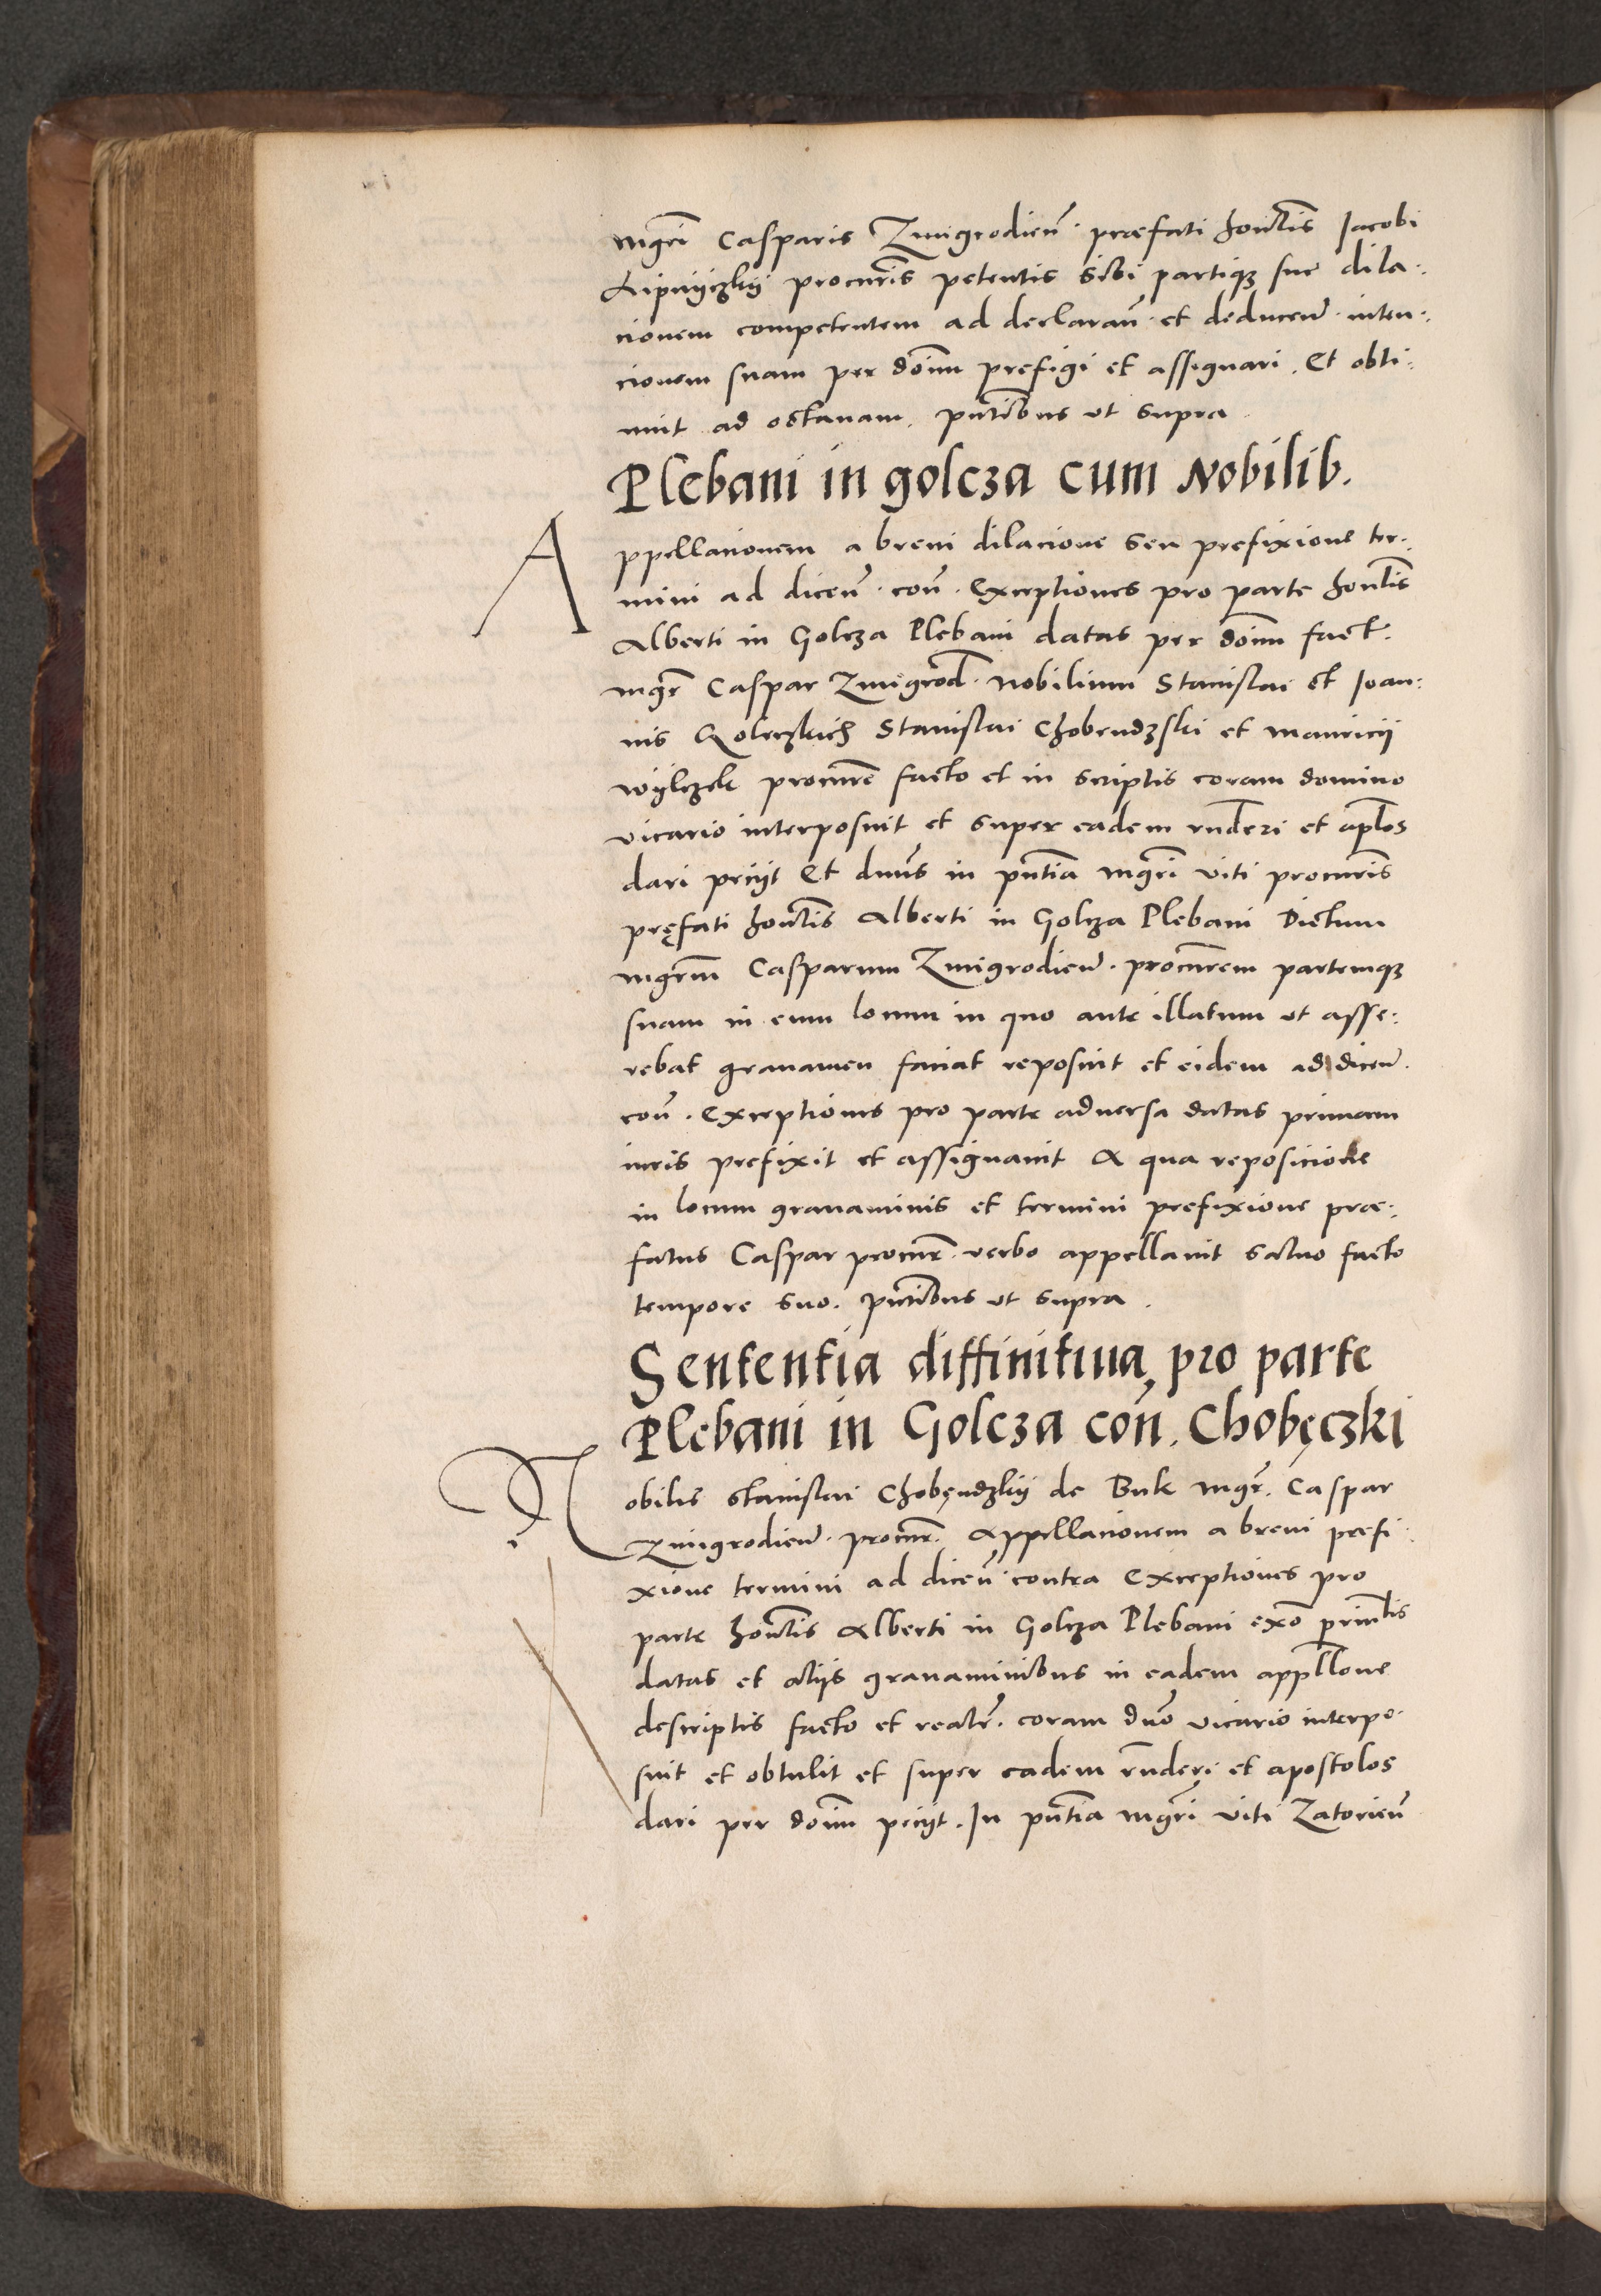 mgr̃i Casparis Zmigrodień. præfati hońlis Jacobi
Lipnyczkij procur̃is petentis sibi partiqȝ sue dila:
cionem competentem ad declarań. et deduceń. inten:
cionem suam per dom̃ prefigi et assignari. Et obti:
nuit ad octauam. pñtibus ut supra
Plebani in golcza cum Nobilib.
Appellacionem a breui dilacione seu prefixione ter:
mini ad diceń. coñ. Exceptiones pro parte hońlis
Alberti in Golcza Plebani datas per dom̃ fact.
mgr̃ Caspar Zmigrod̃. Nobilium Stanislai et Joan:
nis Golczkich Stanislai Chobendzski et Mauricij
Wylczek procur̃e facto et in scriptis coram domino
vicario interposuit et super eadem rñderi et apl̃os
dari pecijt Et dnũs in pñtia mgr̃i Viti procur̃is
pręfati hońlis Alberti in Golcza Plebani Dictum
mgr̃m Casparum Zmigrodień. procur̃em partemqȝ
suam in eum locum in quo ante illatum ut asse:
rebat grauamen faciat reposuit et eidem ad diceń.
coñ. Exceptiones pro parte aduersa datas primam
iuris prefixit et assignauit A qua reposicione
in locum grauaminis et termini prefixione præ:
fatus Caspar procur̃. verbo appellauit saluo facto
tempore suo. pñtibus ut supra.
Sententia diffinitiua, pro parte
Plebani in Golcza coń. Chobęczki
Nobilis Stanislai Chobęndzkij de Buk mgr̃. Caspar
Zmigrodień. procur̃. Appellacionem a breui præfi:
xione termini ad diceń. contra Exceptiones pro
parte hońlis Alberti in Golcza Plebani exõ
datas et alijs grauaminibus in eadem appl̃lone
descriptis facto et realr̃. coram dño vicario interpo:
suit et obtulit et super eadem rñderi et apostolos
dari per dom̃ pecijt. In pñtia mgr̃i Viti Zatorień